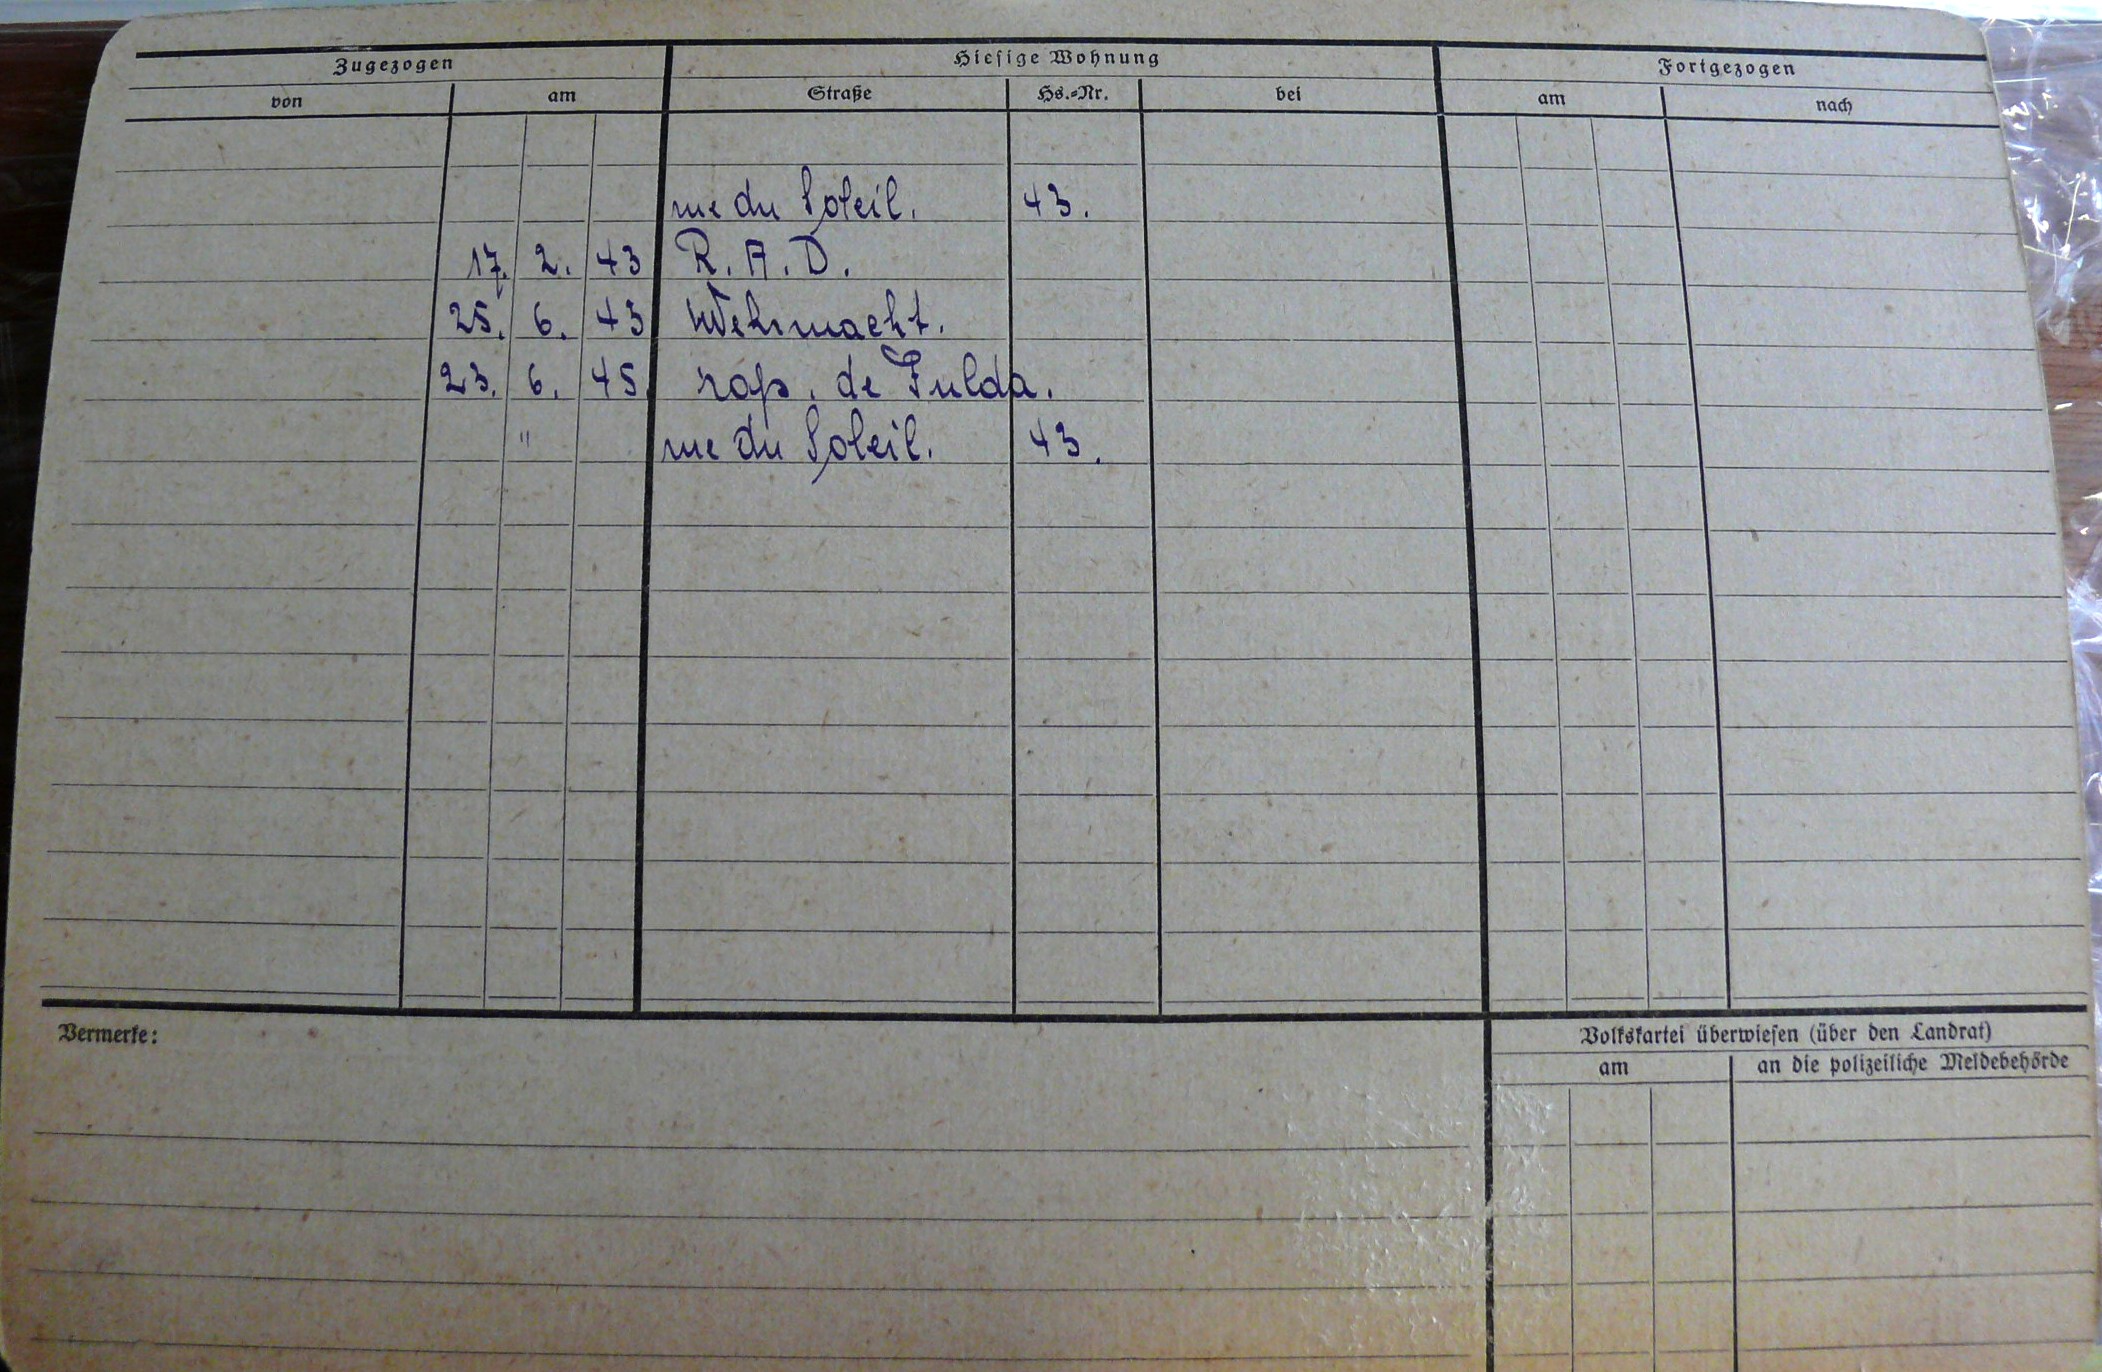 Zugezogen Hiesige Wohnung Fortgezogen
von am Straße Hs.-Nr. bei am nach
rue du Soleil. 43.
17. 2. 43 R. A. D.
25. 6. 43 Wehrmacht.
23. 6. 45. rap. de Fulda.
" rue du Soleil. 43.
Vermerke: Volkskartei überwiesen (über den Landrat)
am an die polizeiliche Meldebehörde